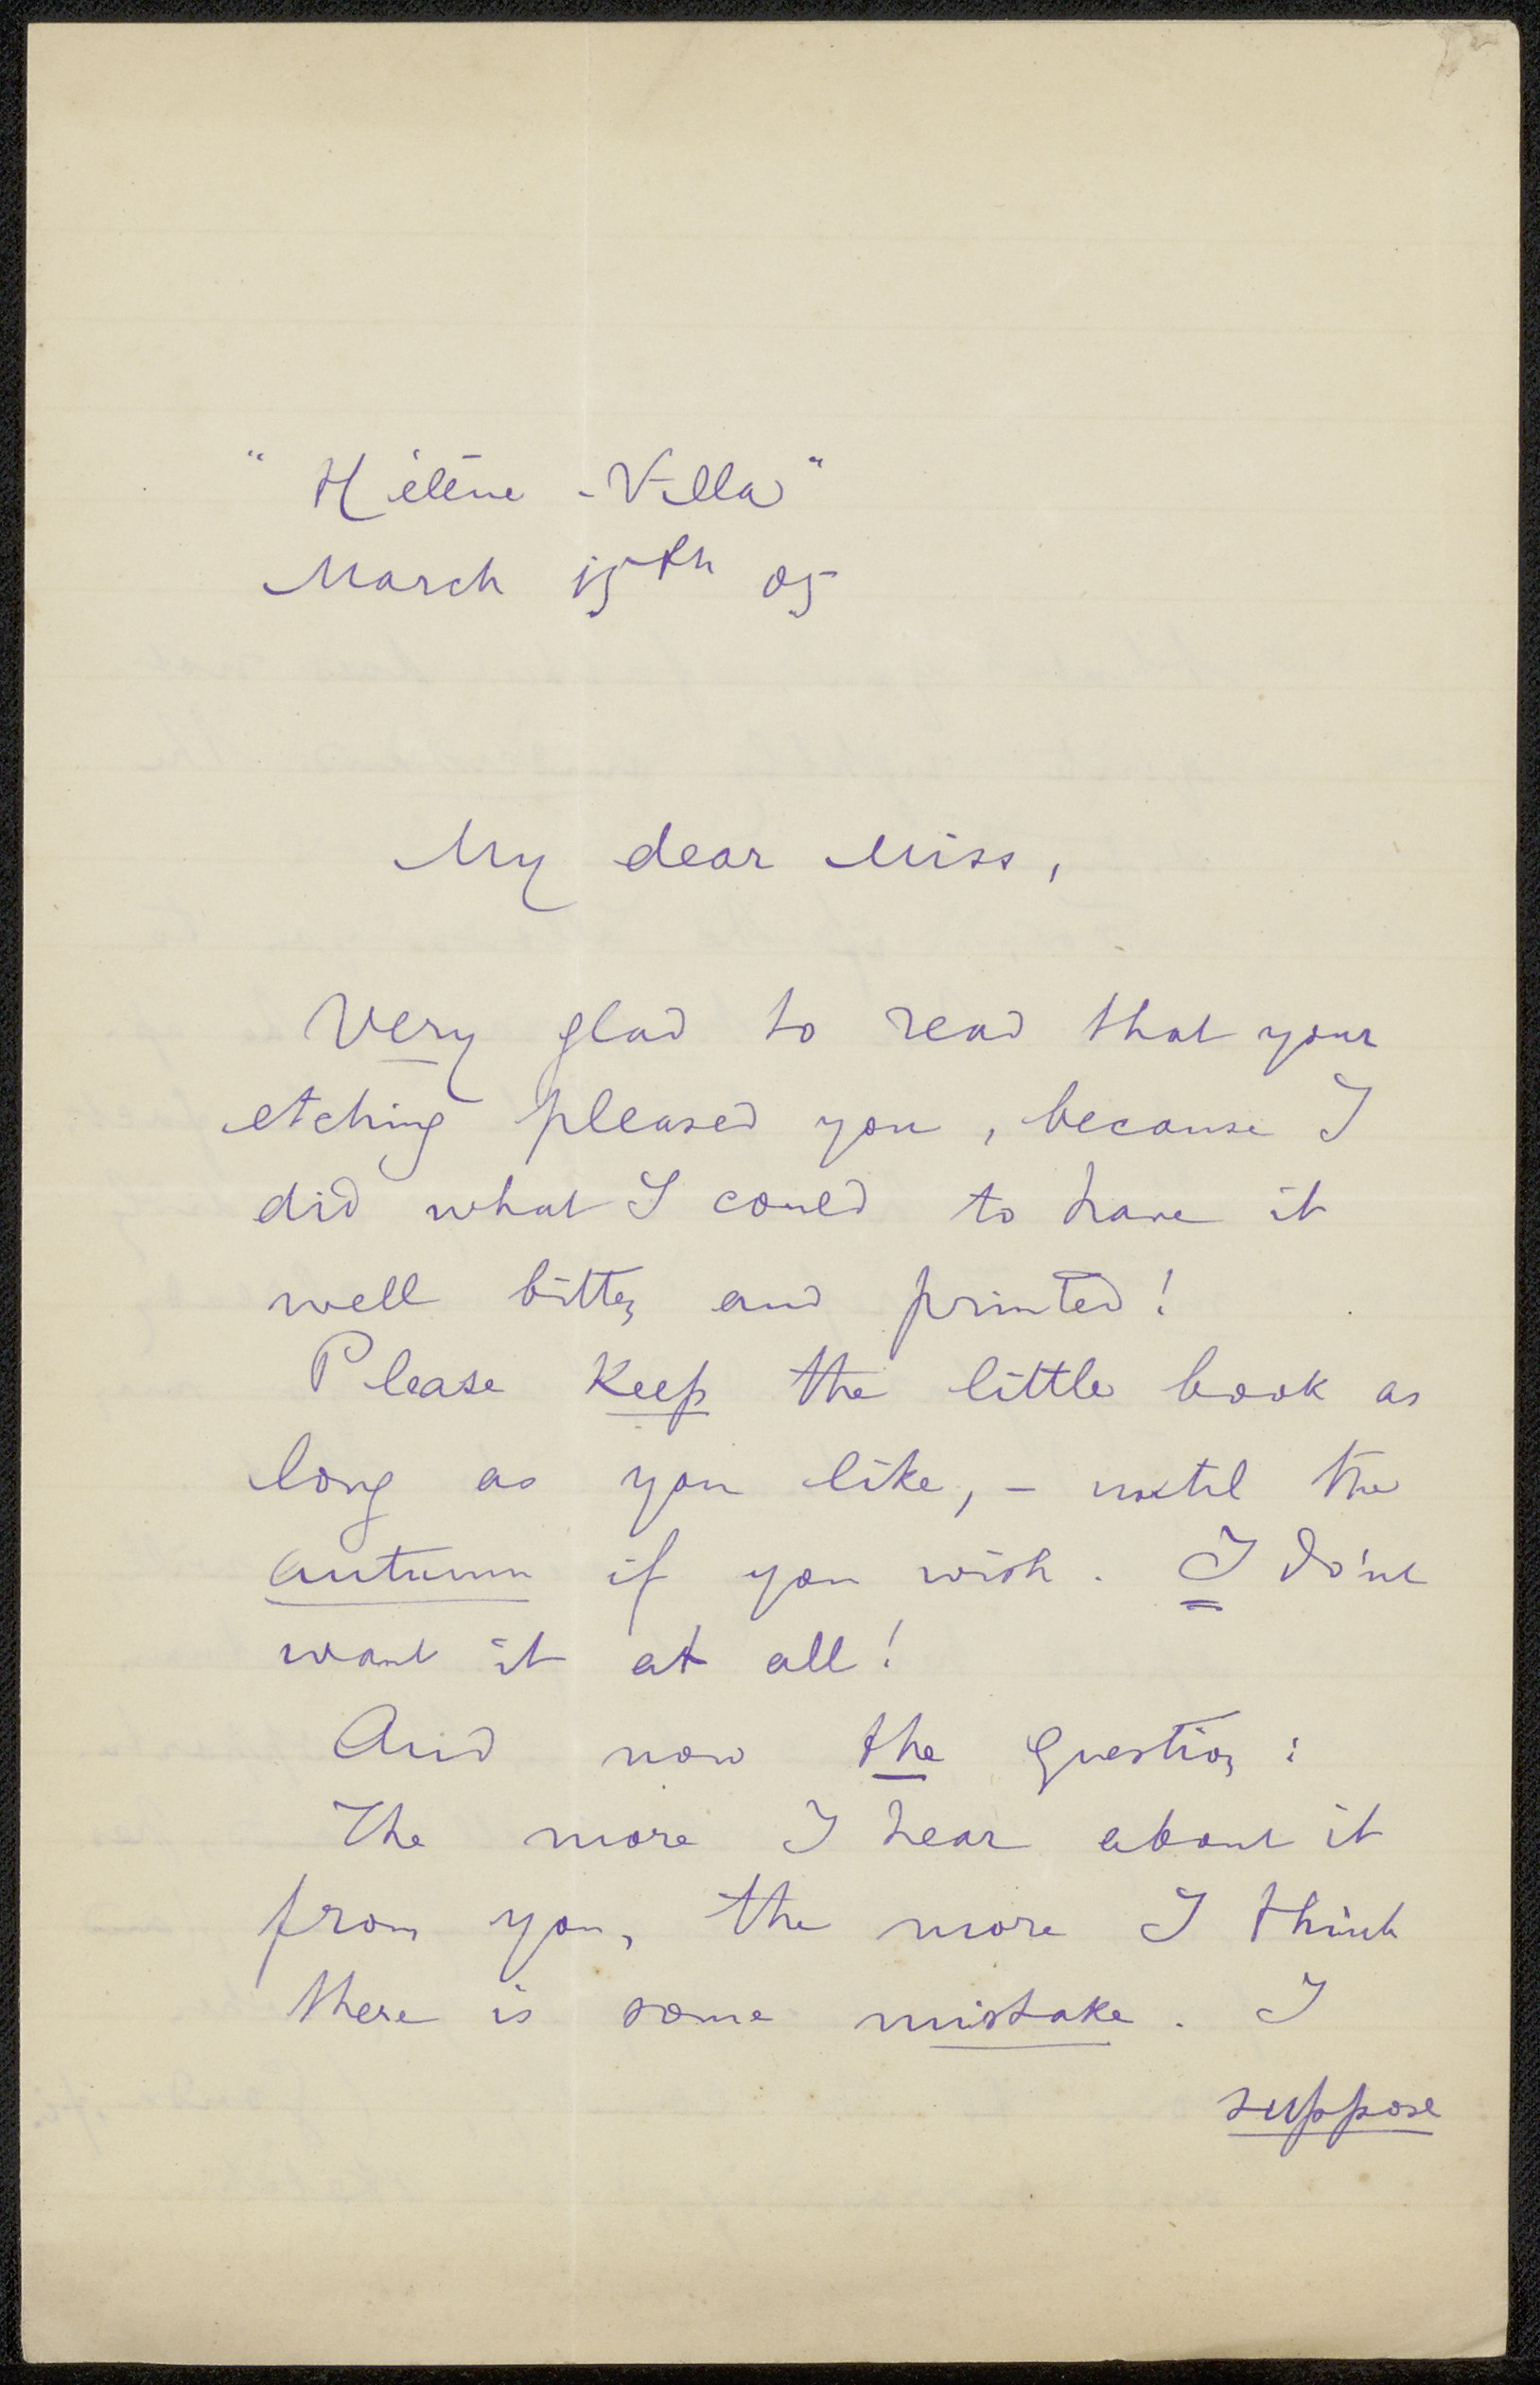 "Hélène-Villa"
March 15th 05
My dear Miss,
Very glad to read that your
etching pleased you, because I
did what I could to have it
well bitten and printed!
Please keep the little book as
long as you like, - until the
autumn if you wish. I do'nt
want it at all!
And now the question:
The more I hear about it
from you, the more I think
there is some mistake. I
suppose